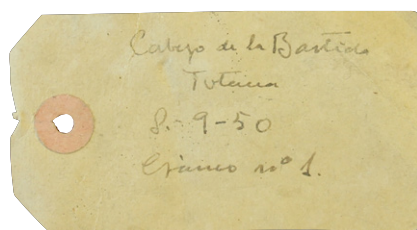 Cabezo de la Bastida
Totana
8-9-50
Cráneo nº 1.